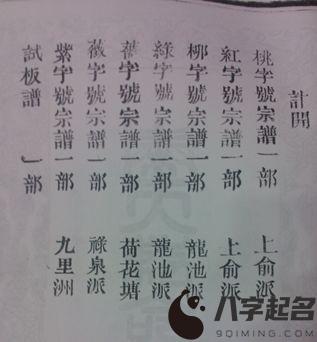 計開
桃字號宗譜一部 上俞派
紅字號宗譜一部 上俞派
柳字號宗譜一部 龍池派
綠字號宗譜一部 龍池派
蓿字號宗譜一部 荷花塘
薇字號宗譜一部 祿泉派
紫字號宗譜一部 九里洲
試板譜 一部
八字起名
9QIMING.COM